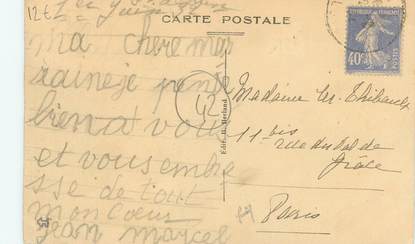 12€
CARTE POSTALE
ma chere mar
raine je pense
bien a vous
et vous embra
sse de tout
mon coeur
Jean Marcel
42
Madame
11 bis
rue du Val de
Grâce
Paris
REPUBLIQUE FRANCAISE
40c
POSTES